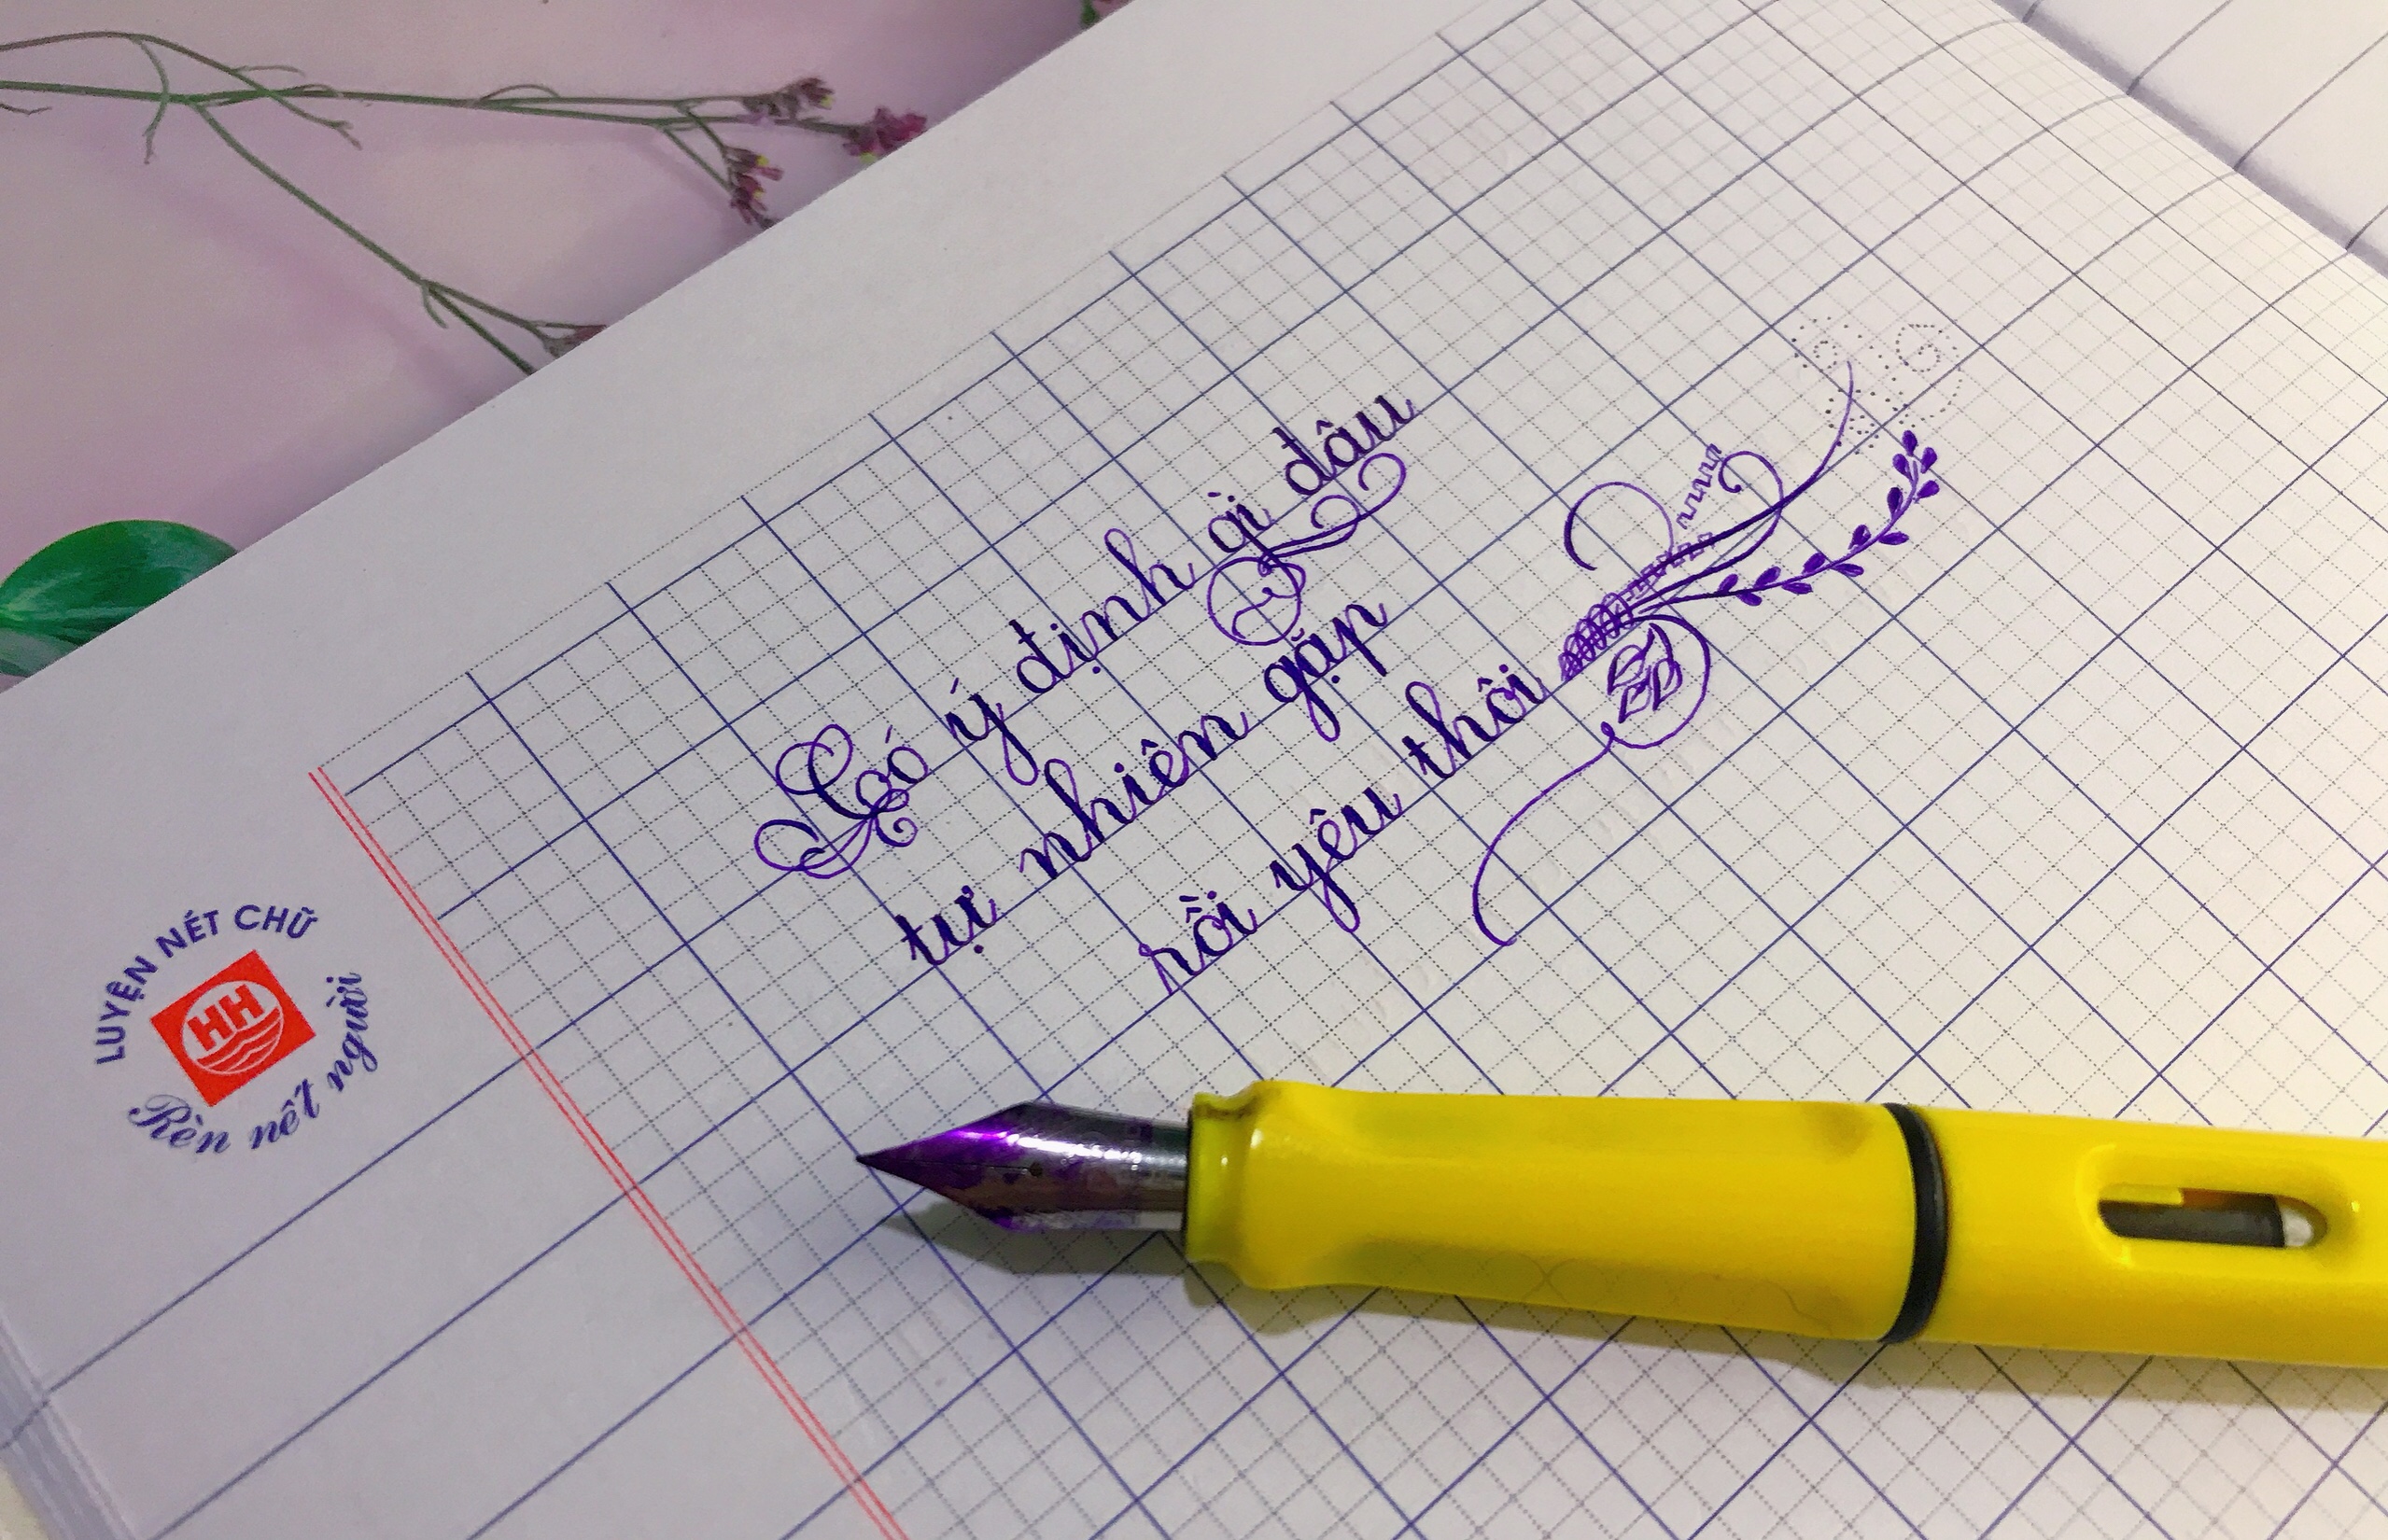 Có ý định gì đâu
tự nhiên gặp
rồi yêu thôi
LUYỆN NÉT CHỮ
HH
Rèn nết người